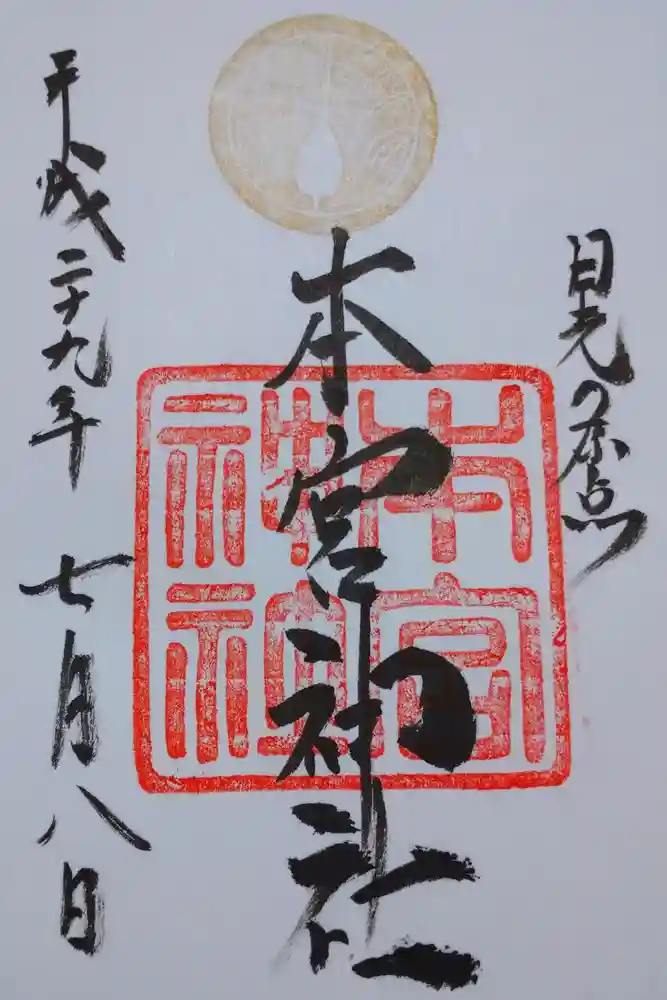 日光の原点
本宮神社
平成二十九年七月八日
本宮
神社